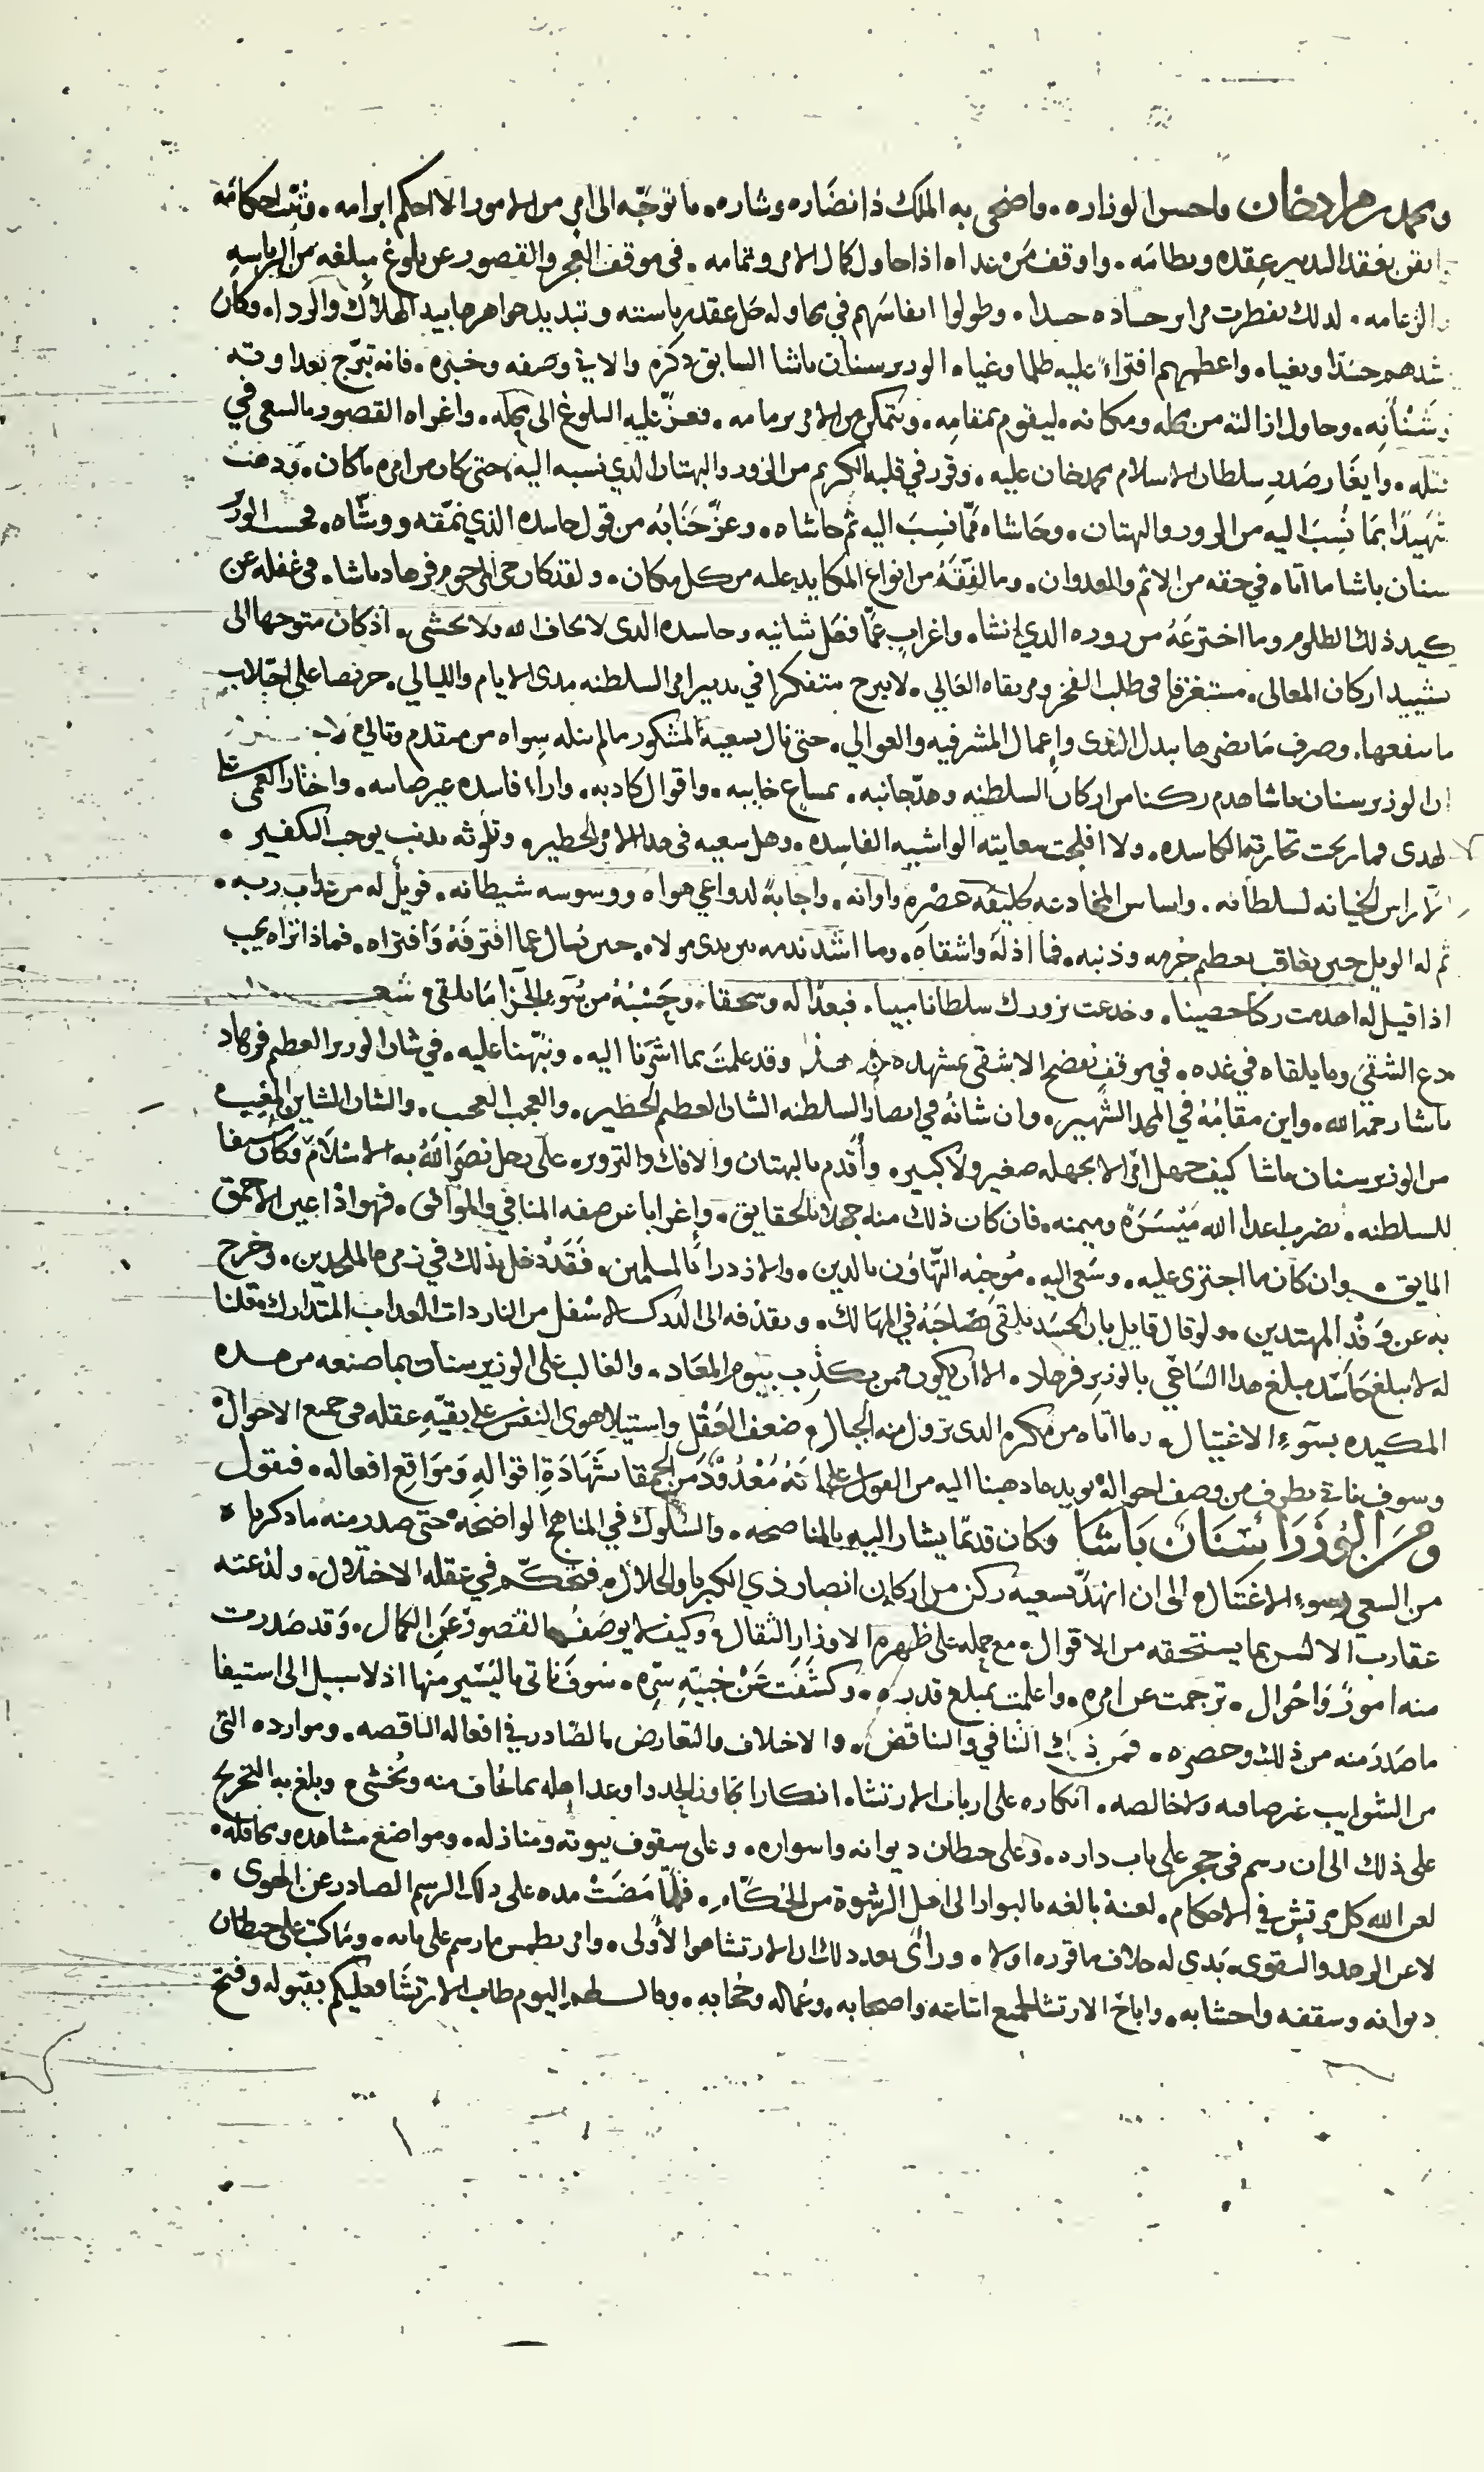 ومحمد بن مراد خان واحسن الوزاره. واضحى به الملك ذا نضاره وشاره. ما توجّه الى امر من الامور الا احكم ابرامه. وثبّت احكامه
بعقد التدبير عقده ونظامه. واوقف من عداه اذا حاول كمال الامر وتمامه. في موقف العجز والقصور عن بلوغ مبلغه من الرياسه
والزعامه. لذلك تفطرت مراير حساده حسدا. وطولوا انفاسهم في محاوله حل عقد رياسته وتبديد جواهرها بيد الهلاك والردا. وكان
اشدهم حسدًا وبغيا. واعظمهم افتراءً عليه ظلما وغيا. الوزير سنان باشا السابق ذكره والاتي وصفه وخبره. فانه تبرّج بعداوته
وشنآنه. وحاول ازالته من محله ومكانه. ليقوم بمقامه. ويتمكن من الامر بزمامه. فعزّ عليه البلوغ الى محله. واغراه القصور بالسعي في
قتله. وايغار صدر سلطان الاسلام محمد خان عليه. وقرر في قلبه الكريم من الزور والبهتان الذي نسبه اليه، حتى كان من امره ما كان. وذهب
شهيدًا بما نُسِبَ اليه من الزور والبهتان. وحاشاه ممّا نسب اليه ثم حاشاه. وعزّ جنابه من قول حاسده الذي نمّقه ووشّاه. فحسب الوزير
سنان باشا ما اتاه في حقه من الاثم والعدوان. وما لفّقه من انواع المكايد عليه من كل مكان. ولقد كان حمى المرحوم فرهاد باشا. في غفله عن
كيد ذلك الظلوم وما اخترعه من زوره الذي انشا. واغراب عمّا فعل شانيه وحاسده الذي لا يخاف الله ولا يخشى. اذ كان متوجها الى
تشييد اركان المعالي. مستغرقا في طلب الفخر ومرتقاه العالي. لا يبرح متفكرا في تدبير امر السلطنه مدى الايام والليالي. حريصا على اجتلاب
ما ينفعها. وصرف ما يضرها ببذل الندى واعمال المشرفيه والعوالي. حتى نال بسعيه المشكور ما لم ينله سواه من متقدم وتالي
ان الوزير سنان باشا هدم ركنا من اركان السلطنه وهدّ جانبه. بمساع خايبه. واقوال كاذبه. واراء فاسده غير صايبه. واختار العمى على
الهدى فما ربحت تجارته الكاسده. ولا افلحت سعايته الواشيه الفاسده. وهل سعيه في هذا الامر الخطير. وتلوثه بذنب يوجب التكفير.
الا راس الخيانه لسلطانه. واساس المخادعه لخليفة عصره واوانه. واجابةً لدواعي هواه ووسوسه شيطانه. فويلٌ له من عذاب ربه.
ثم له الويل حين يعاقب بعظيم جرمه وذنبه. فما اذله واشقاه. وما اشد ندمه بين يدي مولاه. حين يُسال عما اقترفه وافتراه. فماذا تراه يجيب
اذا قيل له اهدمت ركنا حصينا. وخدعت بزورك سلطانا مبينا. فبعدًا له وسحقا. وحسبه من سوء الجزا ما يلقى. شعر
دع الشقي وما يلقاه في غده. في موقف يفضح الاشقى بمشهده وقد علمت بما اشرنا اليه. ونبّهنا عليه. في شان الوزير العظيم فرهاد
باشا رحمه الله. واين مقامه في المجد الشهير. وان شانه في انصار السلطنه الشان العظيم الخطير. والعجب العجب. والشان الشاين المعيب
من الوزير سنان باشا كيف جهل امرًا لا يجهله صغير ولا كبير. واقدم بالبهتان والافك والتزوير. على رجل نصر الله به الاسلام وكان سيفا
للسلطنه. يضرب اعدا الله ميسرةً وميمنه. فان كان ذلك منه جهلا بالحقايق. واغرابا عن صفه المنافي والموافق. فهو اذًا عين الاحمق
المايق. وان كان ما اجترى عليه. وسعى اليه. موجبه التهاون بالدين. والازدراء بالمسلمين. فقد دخل بذلك في زمره الملحدين. وخرج
به عن وفد المهتدين. ولو قال قايل بان الحسد يلقي صاحبه في المهالك. ويقذفه الى الدرك الاسفل من النار ذات العذاب المتدارك. قلنا
له لا يبلغ حاسد مبلغ هذا الساعي بالوزير فرهاد. الا ان يكون ممن يكذب بيوم المعاد. والغالب على الوزير سنان بما صنعه من هذه
المكيده بسوء الاغتيال. وما اتاه من مكره الذي تزول منه الجبال. ضعف العقل واستيلا هوى النفس على بقيّة عقله في جميع الاحوال.
وسوف ناتي بطرف من وصف احواله يويد ما ذهبنا اليه من القول على انه معدود من الحمقا بشهادة اقواله ومواقع افعاله. فنقول
ومن الوزرا سنان باشا وكان قديمًا يشار اليه بالمناصحه. والسلوك في المناهج الواضحه. حتى صدر منه ما ذكرناه
من السعي بسوء الاغتيال. الى ان انهدّ بسعيه ركن من اركان انصار ذي الكبريا والجلال. فتحكّم في عقله الاختلال. ولذعته
عقارب الالسن بما يستحقه من الاقوال. مع حمله على ظهره الاوزار الثقال. وكيف لا يوصف بالقصور عن الكمال. وقد صدرت
منه امورٌ واحوال. ترجمت عن امره. واعلمت بمبلغ قدره. وكشفت عن خبيّة سرّه. سوف ناتي باليسير منها اذ لا سبيل الى استيفا
ما صدر منه من ذلك وحصره. فمن ذلك التنافي والتناقض. والاختلاف والتعارض بالصادر في افعاله الناقصه. وموارده التي
من الشوايب غير صافيه ولا خالصه. انكاره على ارباب الارتشا. انكارا تجاوز الحد واوعد اهله بما يخاف منه ويخشى. وبلغ به التحريج
على ذلك الى ان رسم في حجر على باب داره. وعلى حيطان ديوانه واسواره. وعلى سقوف بيوته ومنازله. ومواضع مشاهده ومحافله.
لعن الله كل مرتش في الاحكام. لعنة بالغه بالبوار الى اهل الرشوة من الحكّام. فلمّا مضت مده على ذلك الرسم الصادر عن الهوى.
لا عن الزهد والتقوى. بدى له خلاف ما قرره اولا. وراى بعد ذلك ان الارتشا هو الأولى. وامر بطمس ما رسم على بابه. وما كتب على حيطان
ديوانه وسقفه واخشابه. واباح الارتشا لجميع اتباعه واصحابه. وعماله وحجابه. وقال لهم اليوم طاب الارتشا فعليكم بقبوله وفتح